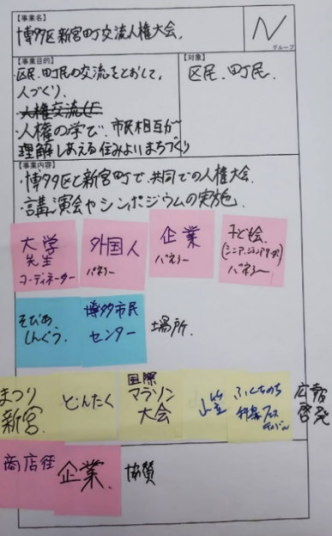 【事業名】
博多区新宮町交流人権大会.
N
グループ
【事業目的】
区民、町民の交流をとおして、
人づくり.
人権交流
・人権の学びで、市民相互が
理解しあえる住みよいまちづくり
【対象】
区民、町民
【事業内容】
・博多区と新宮町で、共同での人権大会.
・講演会やシンポジウムの実施.
大学
先生
コーディネーター
外国人
パネラー
企業
パネラー
子ども会.
パネラー
そぴあ
しんぐう.
博多市民
センター
場所.
まつり
新宮.
どんたく
国際
マラソン
大会
山笠
広報
啓発
商店街
企業.
協賛